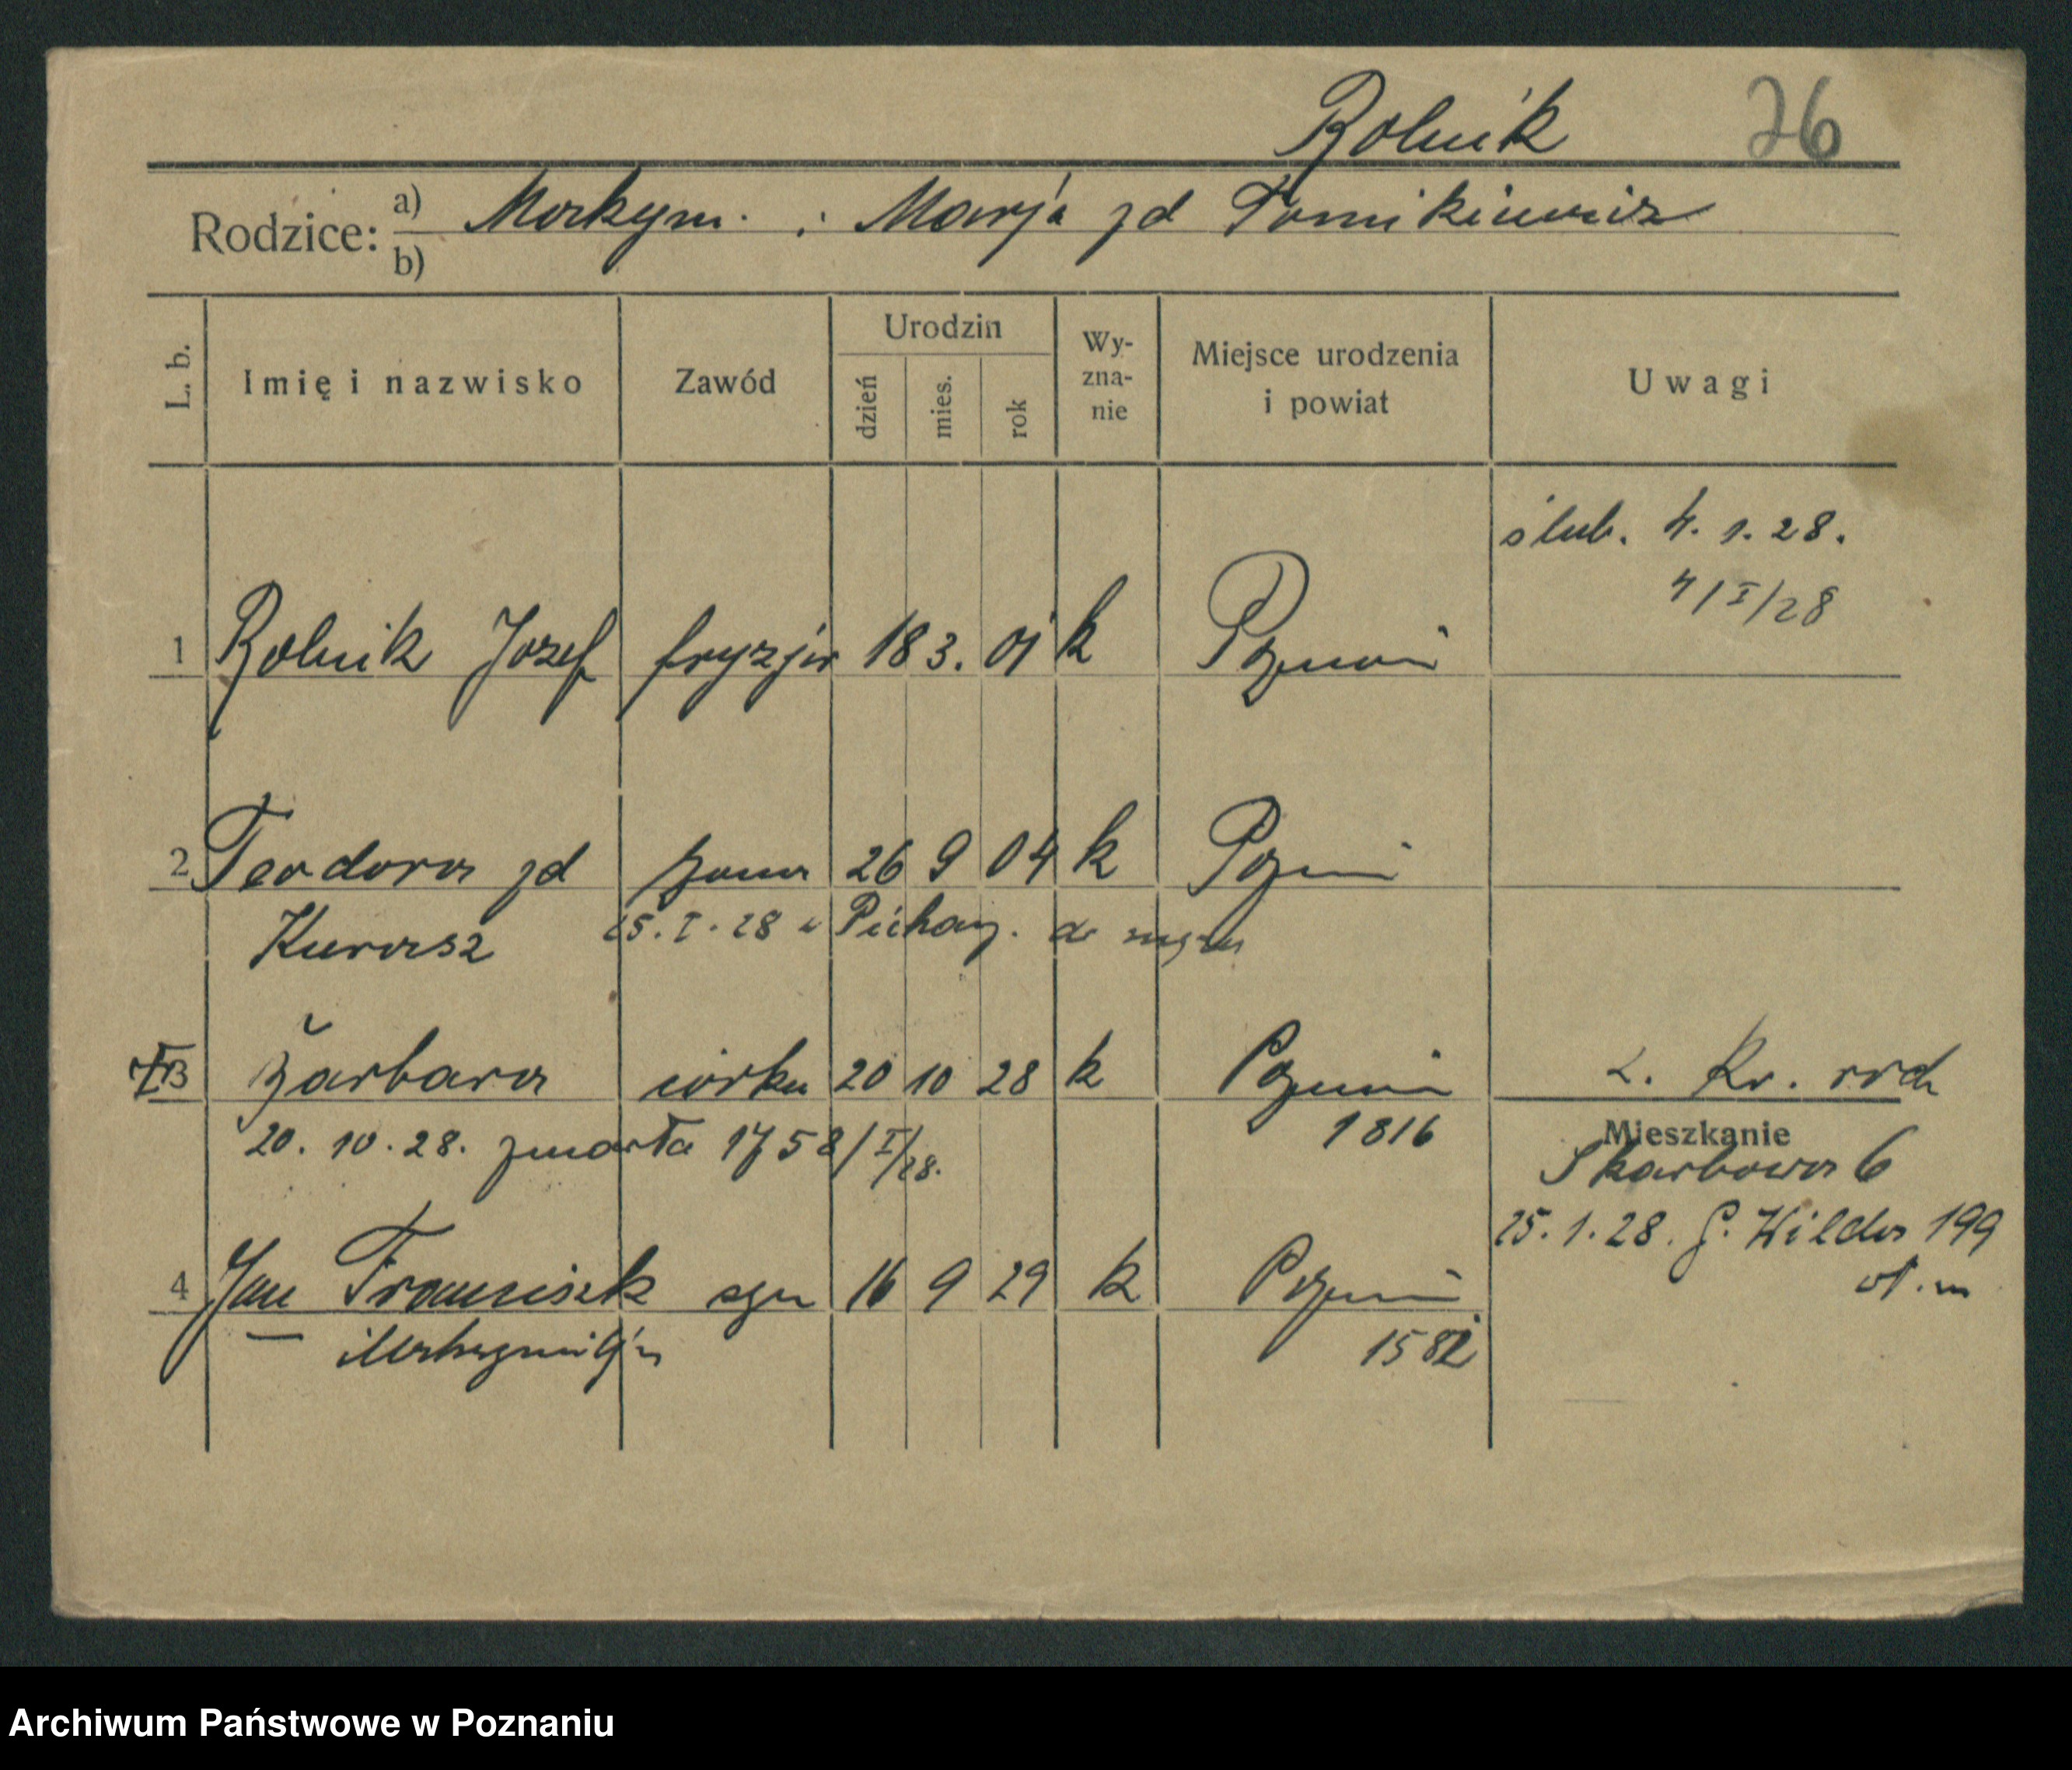 Rolnik 26
Rodzice: a) Maksym. i Marja zd Tomikiewicz
b)
L. b. Imię i nazwisko Zawód Urodzin dzień mies. rok Wyznanie Miejsce urodzenia i powiat Uwagi
ślub. 4. 1. 28.
4/I/28
1 Rolnik Jozef fryzjer 18 3. 01 k Poznań
2 Teodora zd żona 26 9 04 k Pozn
Kurasz 25. I. 28 do męża
3 Barbara córka 20 10 28 k Poznań
1816
20. 10. 28. zmarła 1758/I/28.
Mieszkanie
Skarbowa 6
25. 1. 28. G. Wilda 199
4 Jan Franciszek syn 16 9 29 k Pozn
Maksymiljan 1582
Archiwum Państwowe w Poznaniu